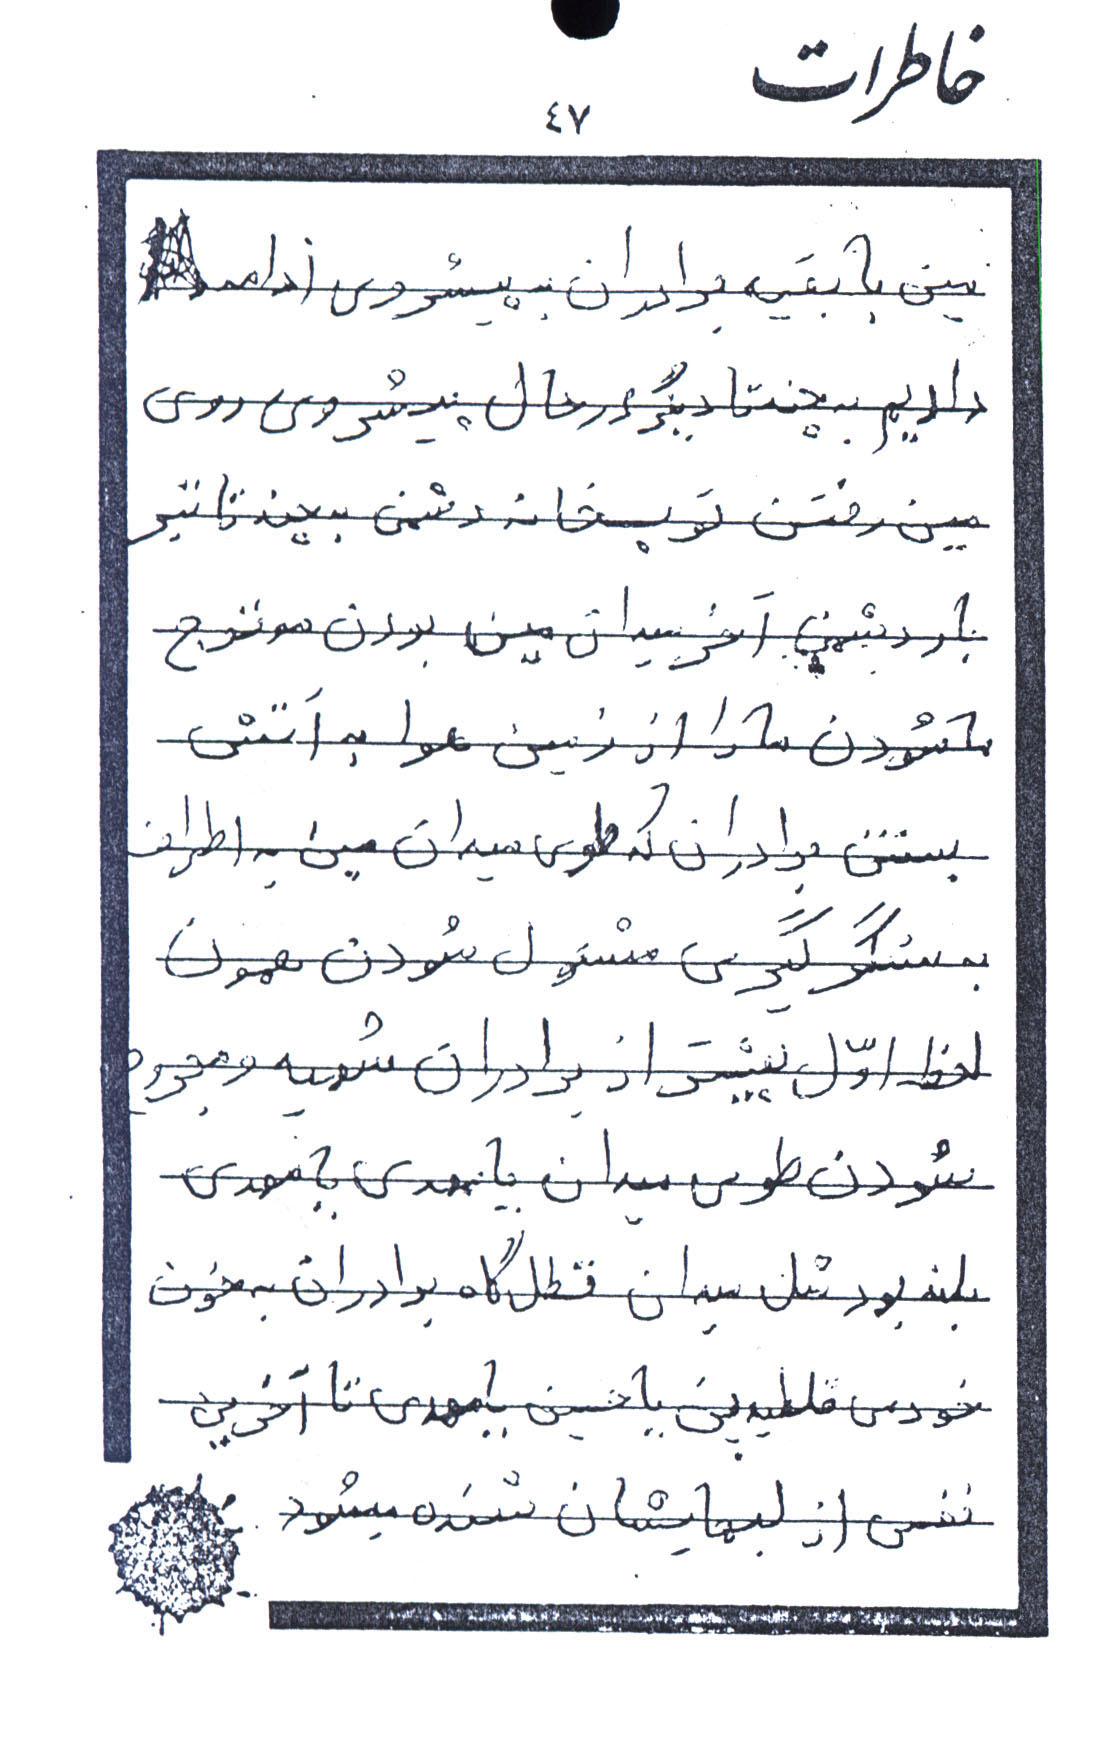 خاطرات
٤٧
مین با بقیه برادران به پیشروی ادامه
دادیم به چند تا دیگر در حال پیشروی روی
مین رفتن توپ خانه دشمن به چند تا تیر
بار دشمن آخر میدان مین بودن متوجع
ما شودن ما را از زمین هوا به آتش
بستن برادران که طوی میدان مین به اطراف
به سنگر گیری مشغول شودن همون
لحظ اوّل بیشتر از برادران شهید و مجروح
شودن طوی میدان یا مهدی یا مهدی
بلند بود مثل میدان قطل گاه برادران به خون
خودی غلطیدین یا حسین یا مهدی تا آخرین
نفس از لبهایشان شنیده میشود